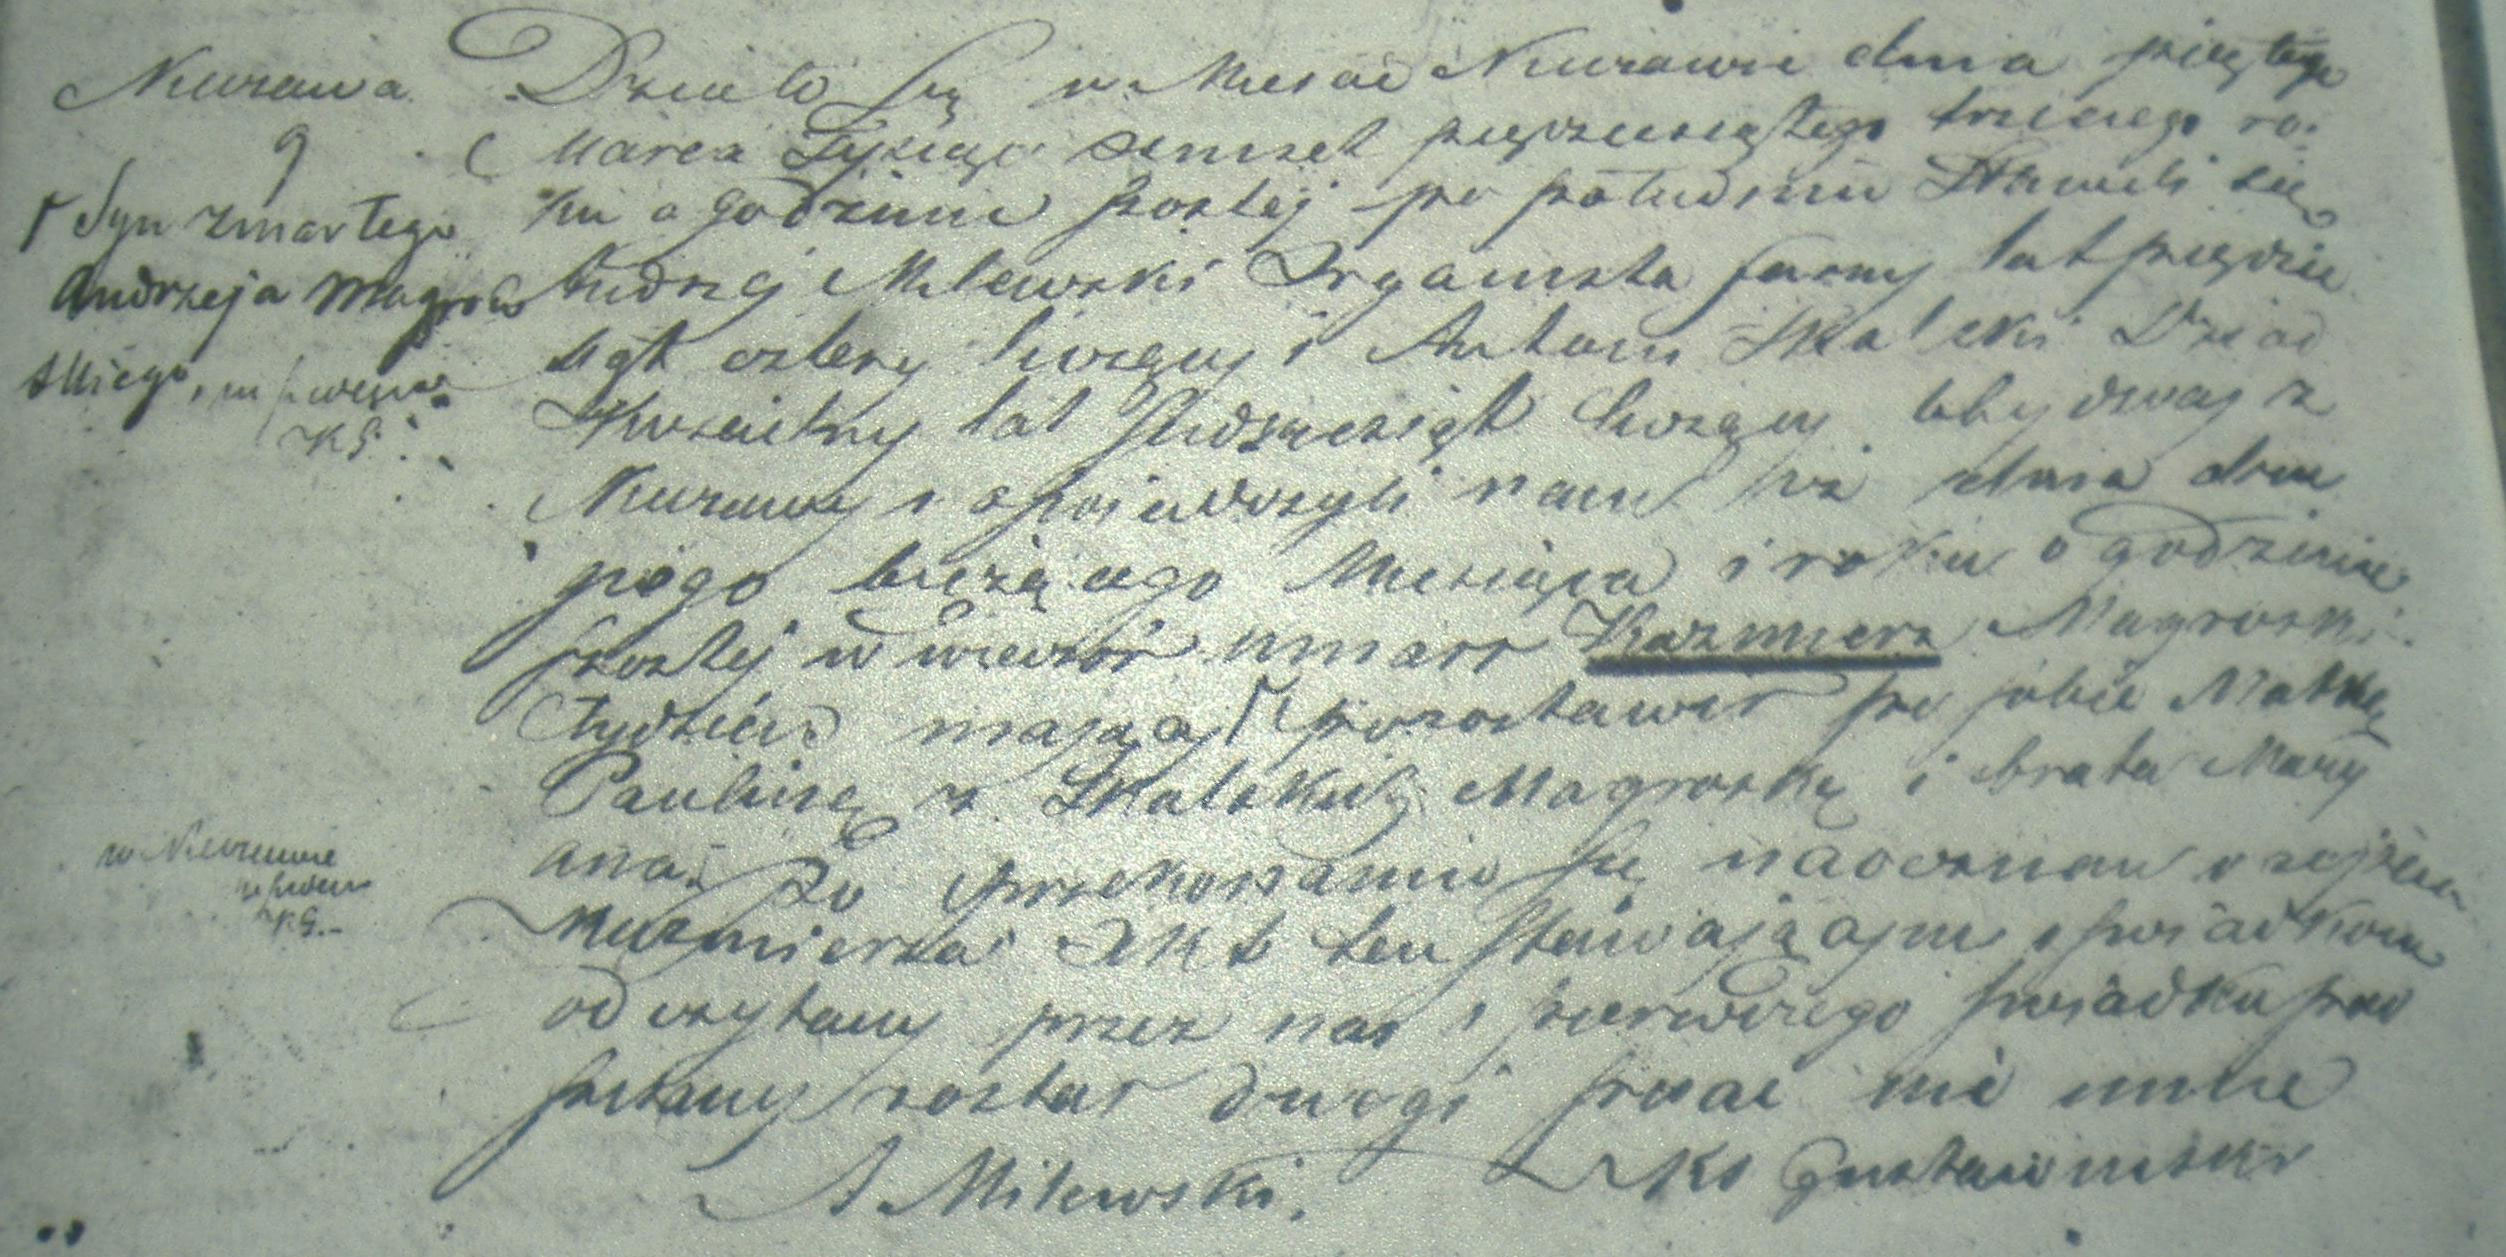 Nurawa
9
Syn zmarłego
Andrzeja Magrow
skiego,
KG.
w Nurawie
KG.
Działo się w Mieście Nurawie dnia piątego
Marca Tysiąc osmset piępdziesiątego trzeciego ro-
ku o godzinie szostej po południu Stawili się
Andrzej Milewski Organista farny lat pięćdzie
siąt cztery liczący i Antoni Skalski Dziad
Kościelny lat siedmdziesiąt liczący obydwaj z
Nurawy i oświadczyli nam iż dnia dru
giego bieżącego Miesiąca i roku o godzinie
szostej w wieczór umarł Kazmierz Magroski
tydzień mający pozostawił po sobie Matkę
Paulinę z Skalskich Magroskę i brata Mary
ana. Po przekonaniu się naocznem o zejściu
Kazmierza Akt ten stawającym świadkom
odczytany przez nas i pierwszego świadka pod
pisany został drugi pisać nie umie
A Milewski. Ks Gustawinski